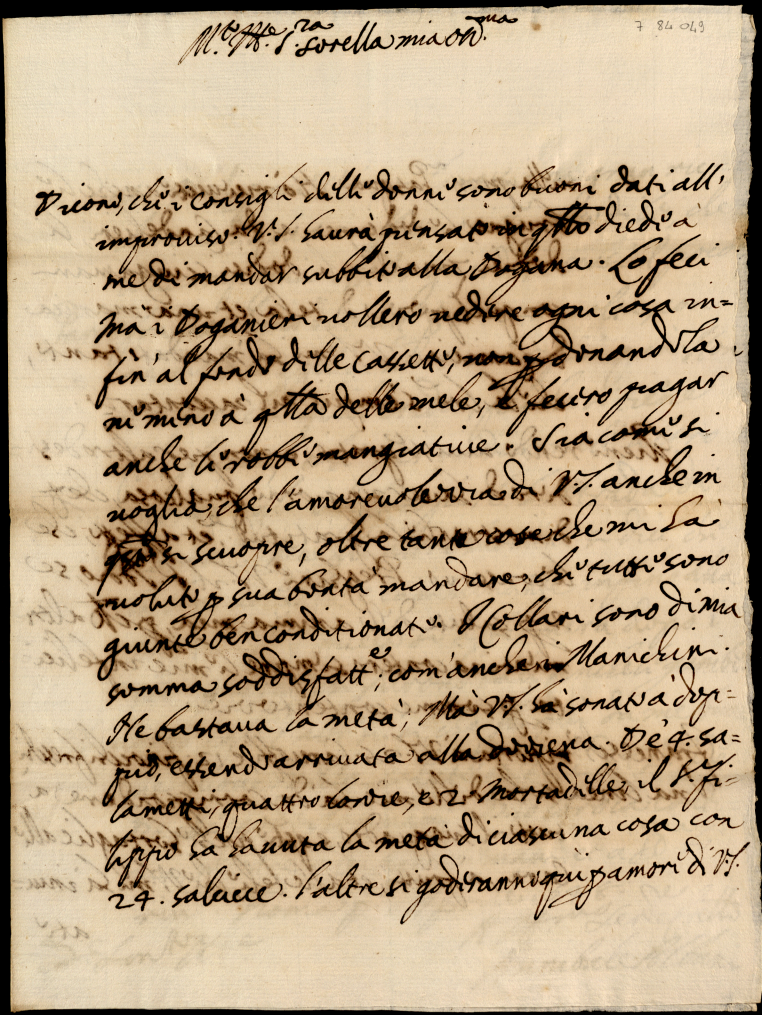 7 84 049
M.to M.e S.ra Sorella mia on.ma
Dicono, che i consigli delle donne sono buoni dati all'
improuiso. V.S. haurà pensato in qsto diede à
me di mandar subbito alla Dogana. Lo feci
ma i Doganieri uollero uedere ogni cosa in=
fin' al fondo delle cassette, non pdonandola
ne meno à qlla delle mele, e fecero pagar
anche le robbe mangiatiue. Sia come si
uoglia, che l'amoreuolezza di V.S. anche in
qsto si scuopre, oltre tante cose che mi hà
uoluto p sua bontà mandare, che tutte sono
giunte ben conditionate. I Collari sono di mia
somma soddisfatt.e, com'anche i Manichini.
Ne bastaua la metà, Mà V.S. hà sonato à dop=
pio, essendo arriuata alla dozzena. De 4. sa=
lametti, quattro lonze, e 2 Mortadelle, il S. Fi=
lippo hà hauuta la metà di ciascuna cosa con
24. salcicce. l'altre si goderanno quì p amore di V.S.